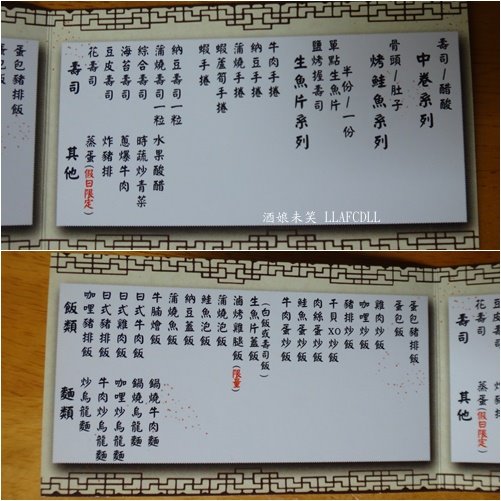 壽司/醋酸
中卷系列
骨頭/肚子
烤鮭魚系列
半份/一份
單點生魚片
鹽烤握壽司
生魚片系列
牛肉手捲
納豆手捲
蒲燒手捲
蝦蘆筍手捲
蝦手捲
納豆壽司一粒
蒲燒壽司一粒
綜合壽司
海苔壽司
豆皮壽司
花壽司
壽司
水果酸醋
時蔬炒青菜
蔥爆牛肉
炸豬排
蒸蛋(假日限定)
其他
蛋包豬排飯
蛋包飯
酒娘未笑 LLAFCDLL
蛋包豬排飯
蛋包飯
雞肉炒飯
咖哩炒飯
豬排炒飯
干貝XO炒飯
肉絲蛋炒飯
鮭魚蛋炒飯
牛肉蛋炒飯
(白飯或壽司飯)
生魚片蓋飯
滷烤雞腿飯(限量)
蒲燒泡飯
鮭魚泡飯
納豆蓋飯
蒲燒魚飯
牛腩燴飯
日式牛肉飯
日式雞肉飯
日式豬排飯
咖哩豬排飯
飯類
鍋燒牛肉麵
鍋燒烏龍麵
咖哩炒烏龍麵
牛肉炒烏龍麵
炒烏龍麵
麵類
豆皮壽司
花壽司
壽司
炸豬排
蒸蛋(假日限定)
其他